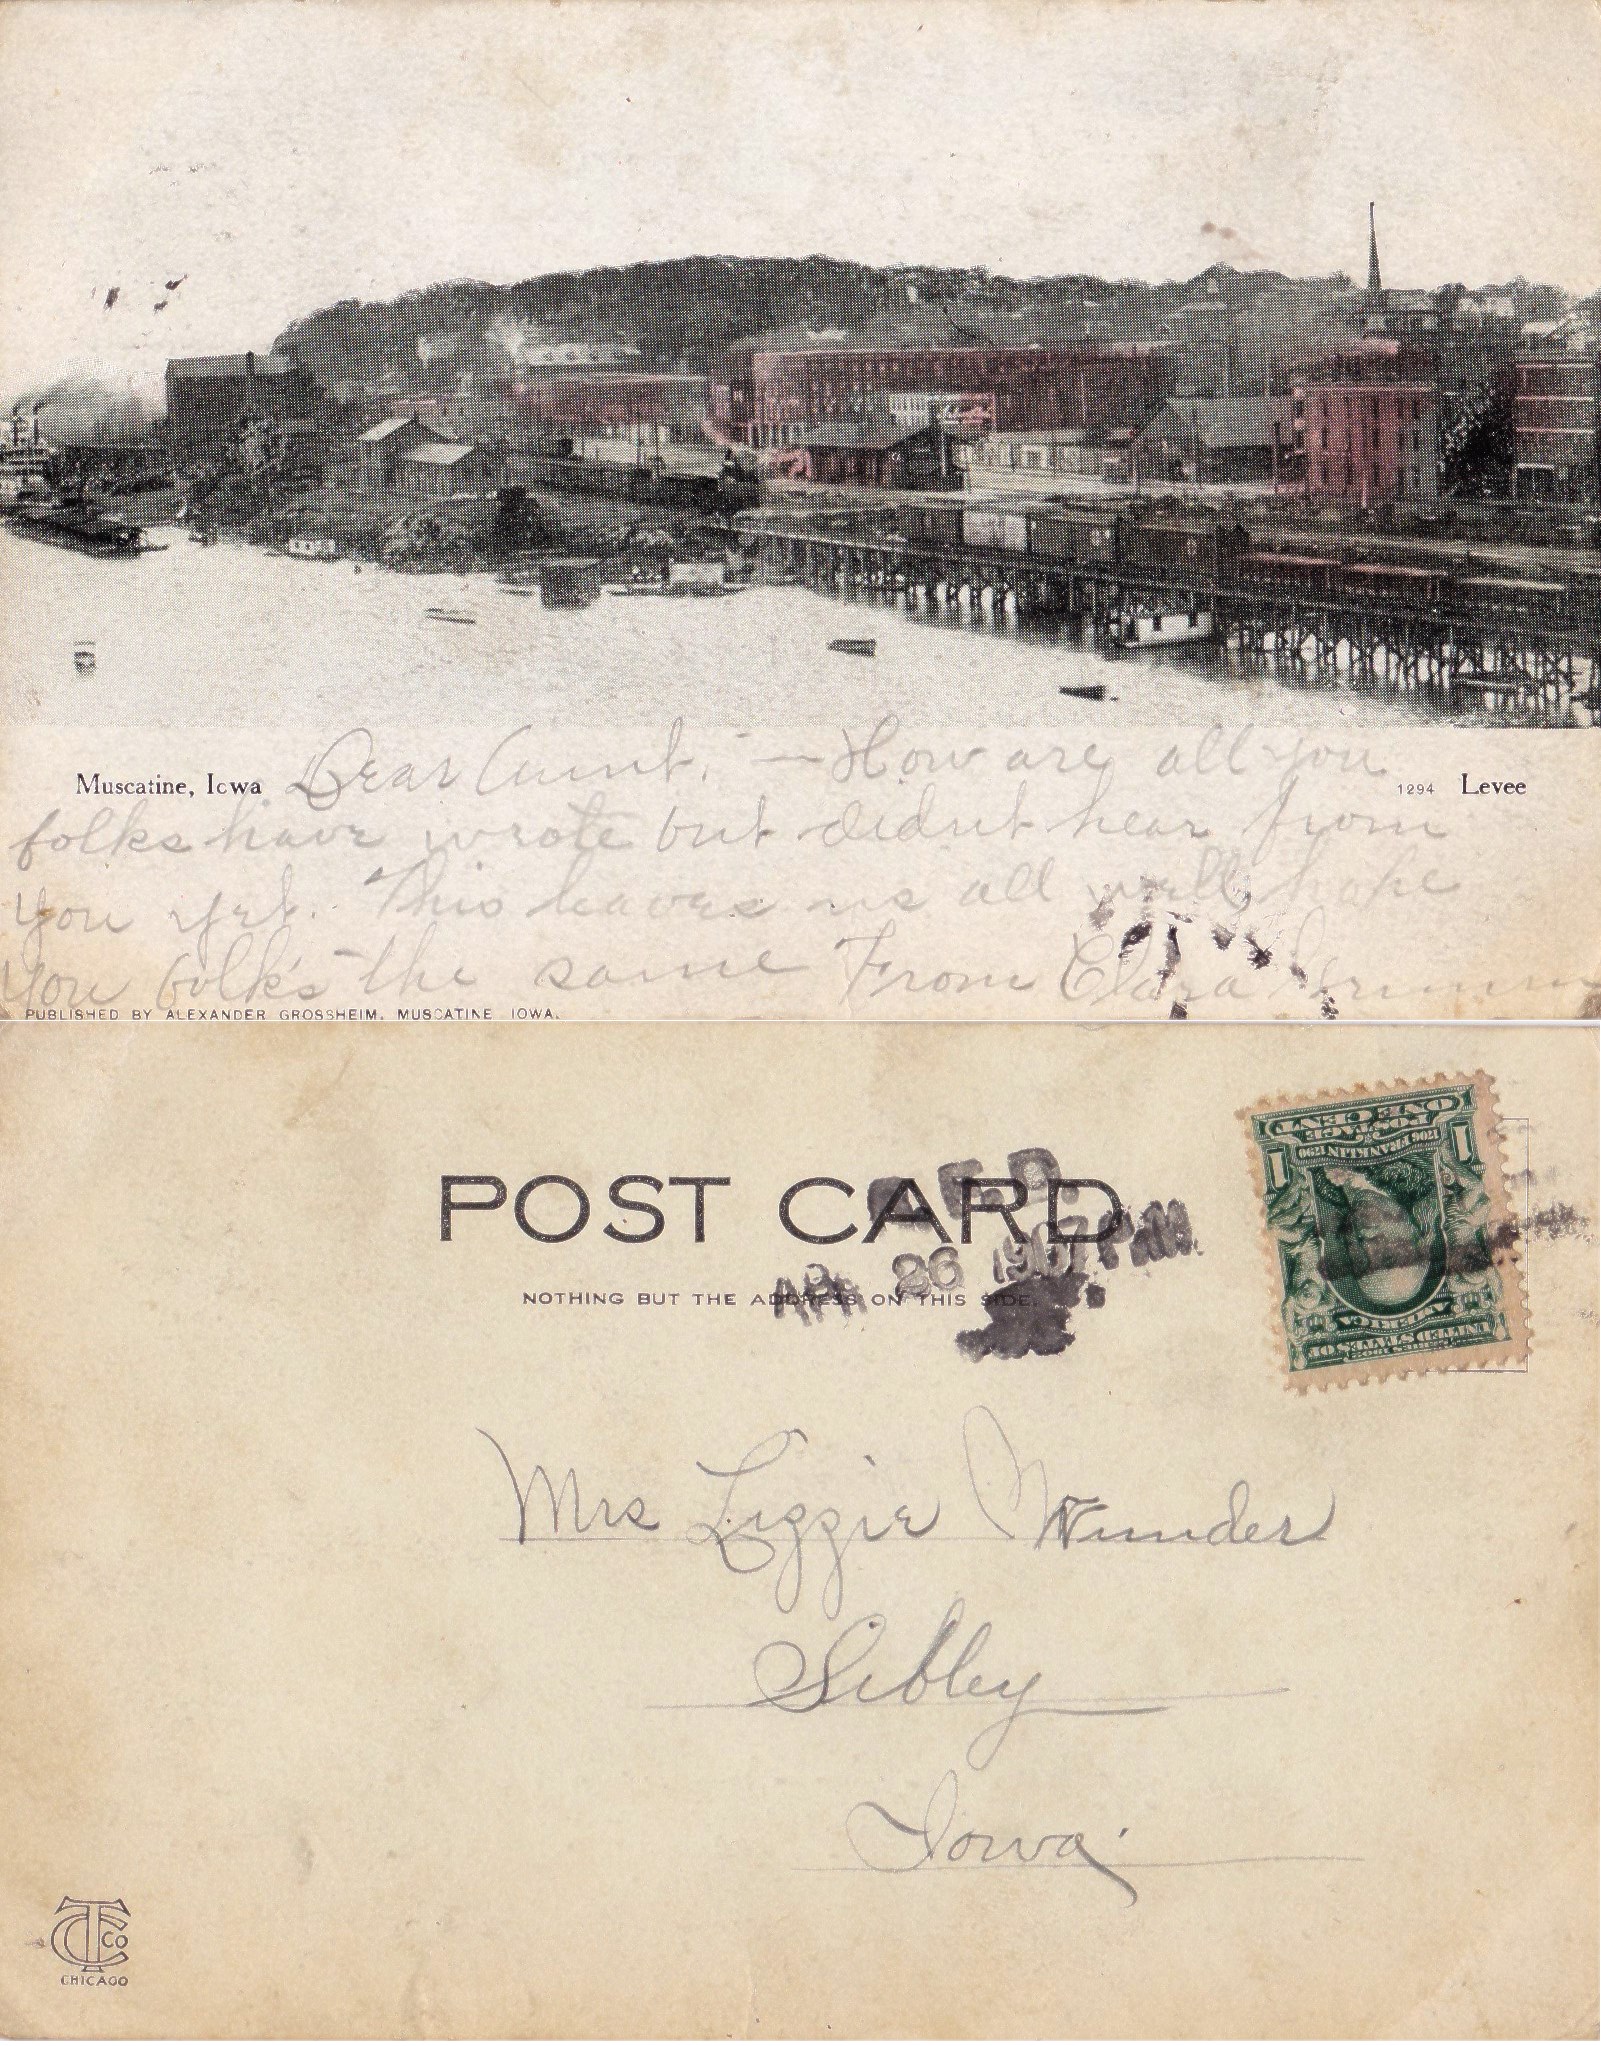 Muscatine, Iowa
1294 Levee
Dear Aunt, — How are all you
folks have wrote but didnt hear from
you yet. This leaves us all well hope
you folk's the same From Clara
PUBLISHED BY ALEXANDER GROSSHEIM, MUSCATINE IOWA.
POST CARD
NOTHING BUT THE ADDRESS ON THIS SIDE.
R.F.D.
APR 26 1907 P.M.
ONE CENT
POSTAGE
1706 FRANKLIN 1790
1 1
AMERICA
UNITED STATES OF
SERIES 1902
Mrs Lizzie Wunder
Sibley
Iowa.
CTCo
CHICAGO